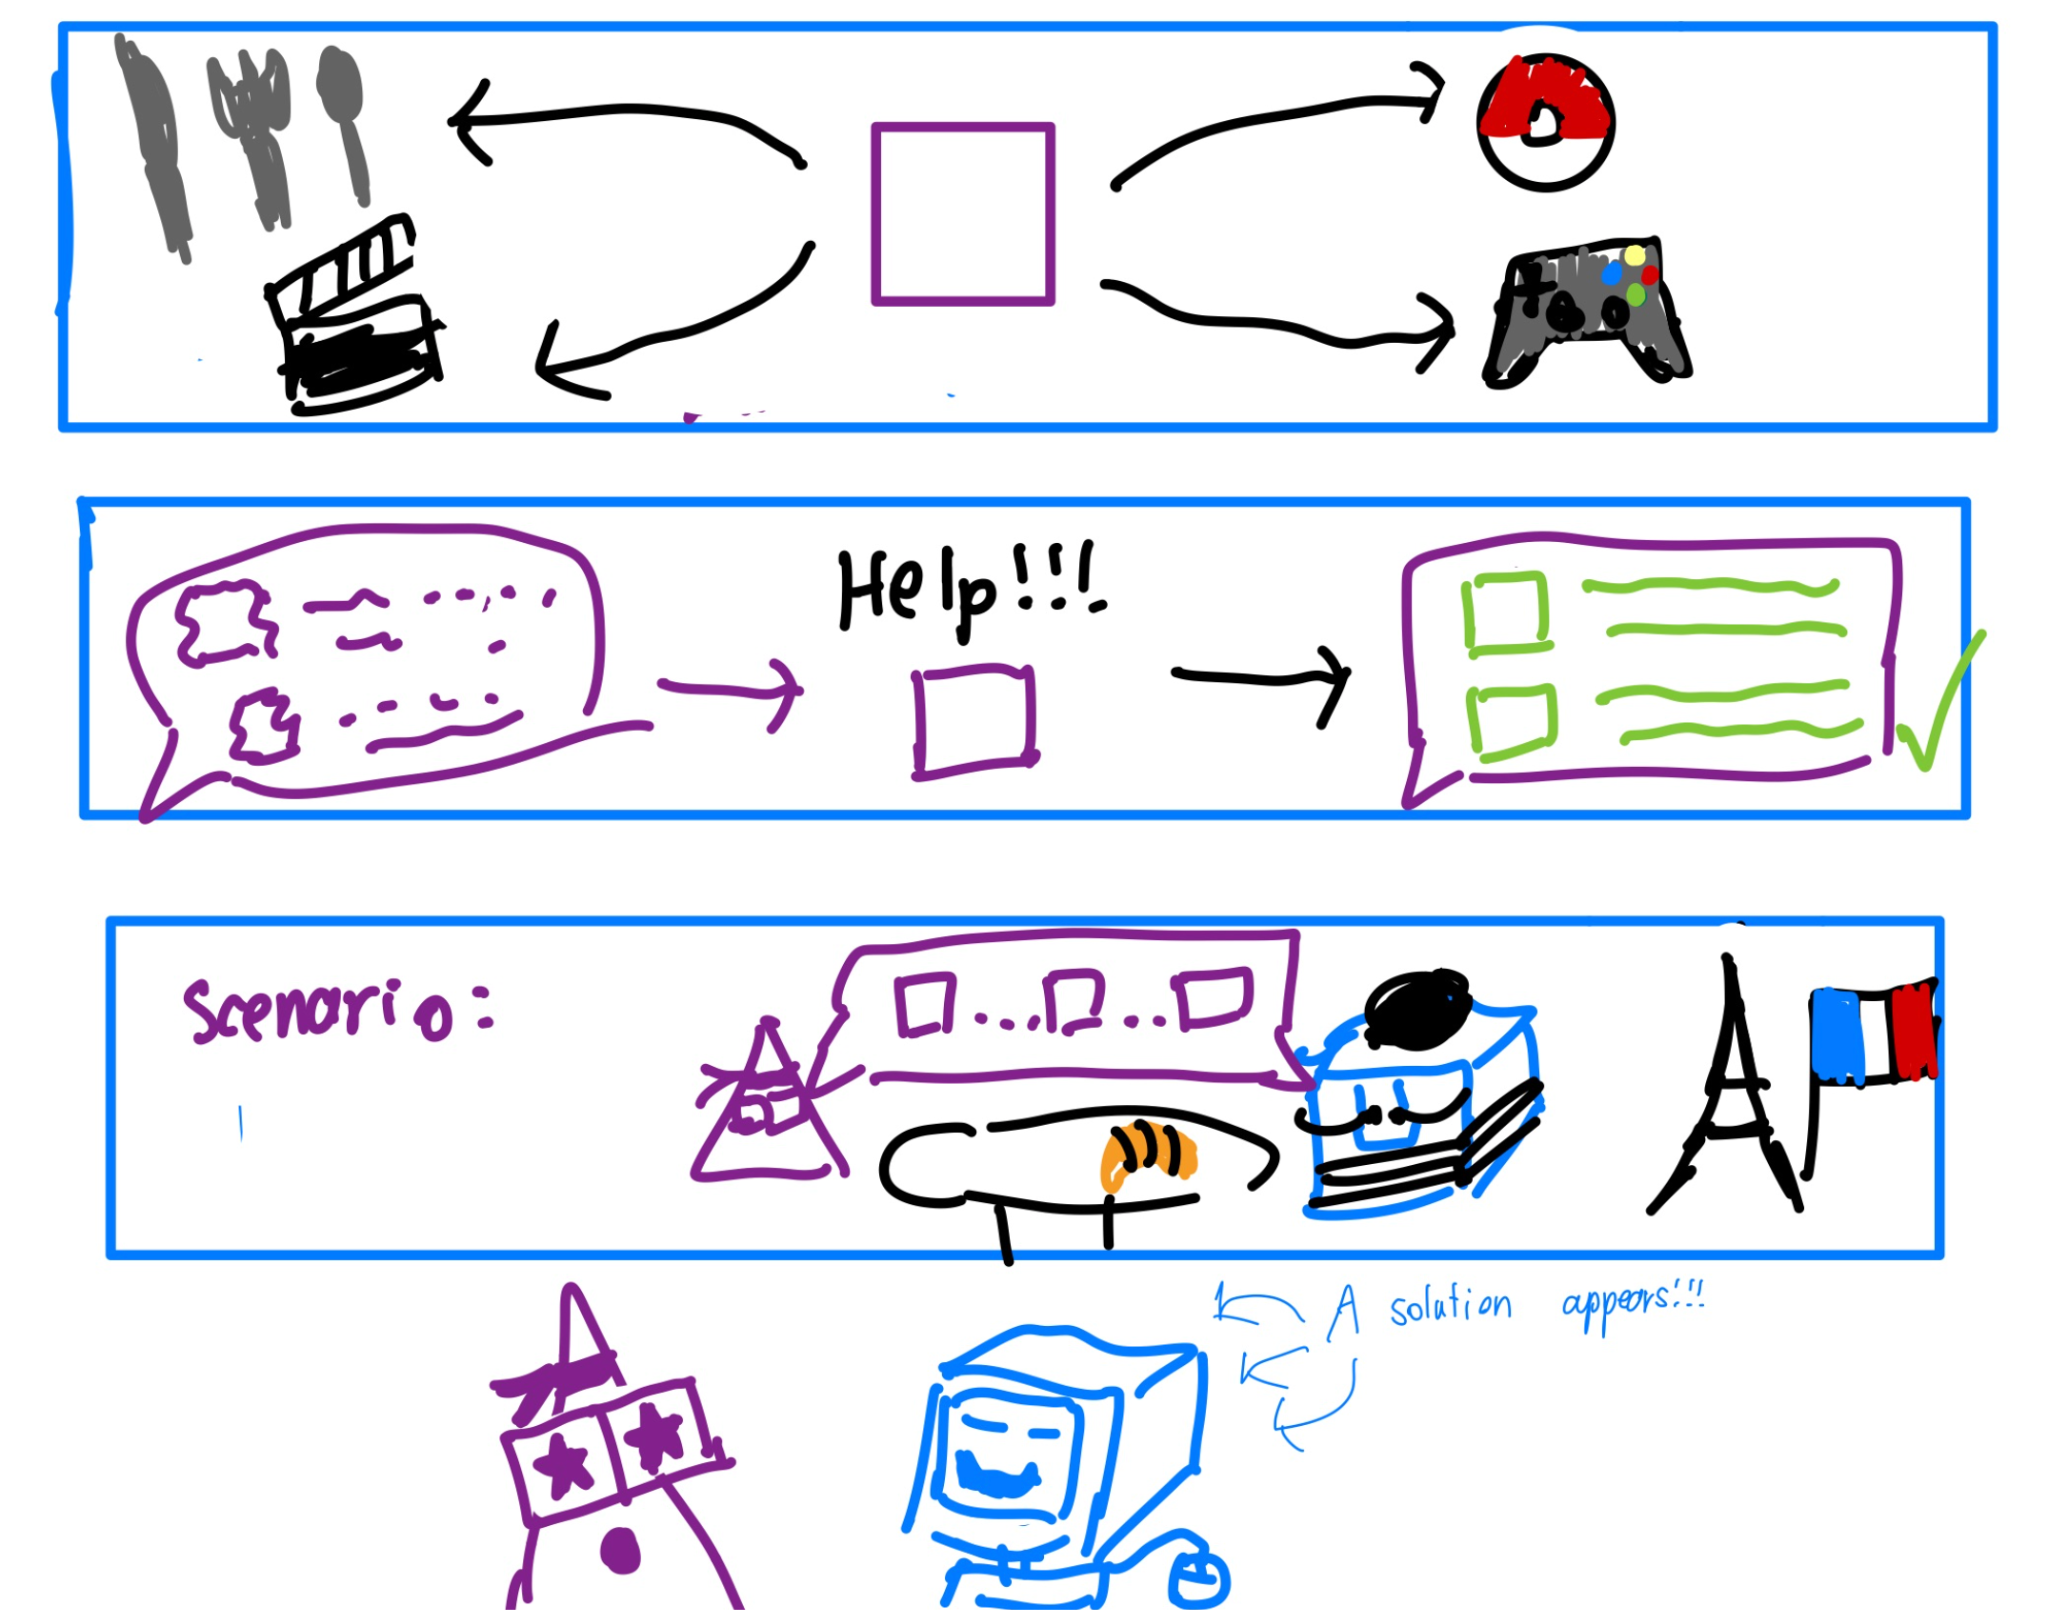 Help!!!
Scenario:
A solution appears!!!